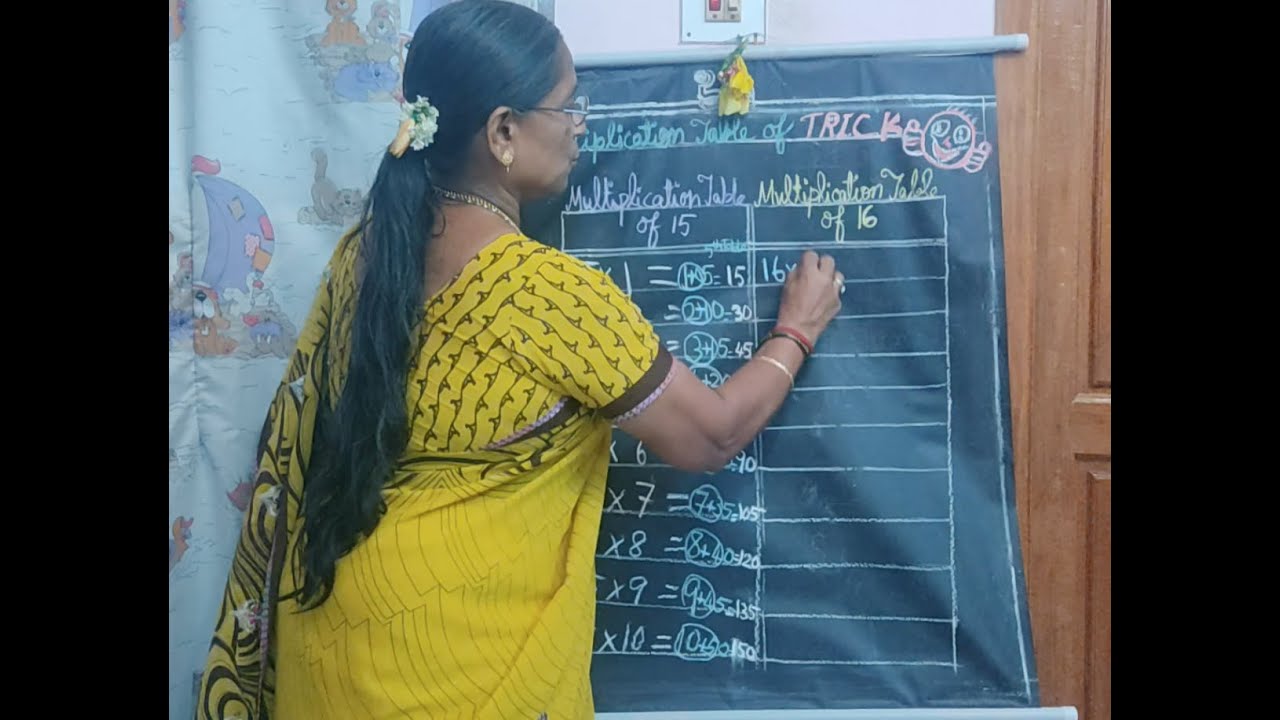 iplication Table of TRICK
Multiplication Table of 15
Multiplication Table of 16
5th Table
x 1 = 1+05=15
16x
= 2+10=30
= 3+15=45
+20
x 6 =90
x 7 = 7+35=105
x 8 = 8+40=120
x 9 = 9+45=135
x 10 = 10+50=150